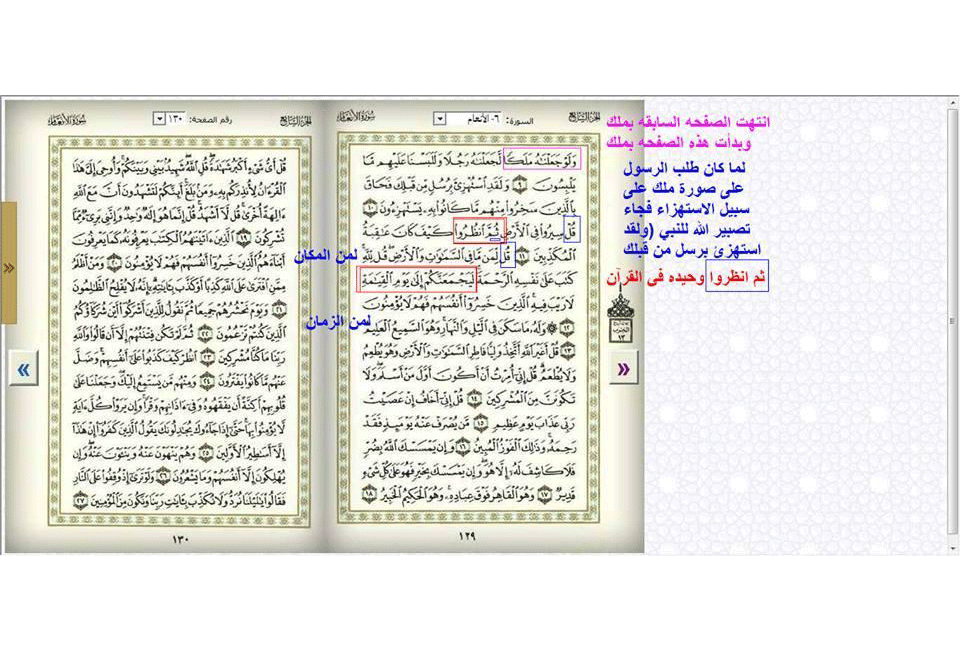 انتهت الصفحه السابقه بملك
وبدأت هذه الصفحه بملك
لما كان طلب الرسول
على صورة ملك على
سبيل الاستهزاء فجاء
تصبير الله للنبي (ولقد
استهزئ برسل من قبلك
ثم انظروا وحيده فى القرآن
لمن المكان
لمن الزمان
الجزء السابع
السورة: ٦- الأنعام
سورة الأنعام
وَلَوْ جَعَلْنَٰهُ مَلَكًا لَّجَعَلْنَٰهُ رَجُلًا وَلَلَبَسْنَا عَلَيْهِم مَّا
يَلْبِسُونَ ٩ وَلَقَدِ ٱسْتُهْزِئَ بِرُسُلٍ مِّن قَبْلِكَ فَحَاقَ
بِٱلَّذِينَ سَخِرُوا۟ مِنْهُم مَّا كَانُوا۟ بِهِۦ يَسْتَهْزِءُونَ ١٠
قُلْ سِيرُوا۟ فِى ٱلْأَرْضِ ثُمَّ ٱنظُرُوا۟ كَيْفَ كَانَ عَٰقِبَةُ
ٱلْمُكَذِّبِينَ ١١ قُل لِّمَن مَّا فِى ٱلسَّمَٰوَٰتِ وَٱلْأَرْضِ قُل لِّلَّهِ
كَتَبَ عَلَىٰ نَفْسِهِ ٱلرَّحْمَةَ لَيَجْمَعَنَّكُمْ إِلَىٰ يَوْمِ ٱلْقِيَٰمَةِ
لَا رَيْبَ فِيهِ ٱلَّذِينَ خَسِرُوٓا۟ أَنفُسَهُمْ فَهُمْ لَا يُؤْمِنُونَ
١٢ وَلَهُۥ مَا سَكَنَ فِى ٱلَّيْلِ وَٱلنَّهَارِ وَهُوَ ٱلسَّمِيعُ ٱلْعَلِيمُ
١٣ قُلْ أَغَيْرَ ٱللَّهِ أَتَّخِذُ وَلِيًّا فَاطِرِ ٱلسَّمَٰوَٰتِ وَٱلْأَرْضِ وَهُوَ يُطْعِمُ
وَلَا يُطْعَمُ قُلْ إِنِّىٓ أُمِرْتُ أَنْ أَكُونَ أَوَّلَ مَنْ أَسْلَمَ وَلَا
تَكُونَنَّ مِنَ ٱلْمُشْرِكِينَ ١٤ قُلْ إِنِّىٓ أَخَافُ إِنْ عَصَيْتُ
رَبِّى عَذَابَ يَوْمٍ عَظِيمٍ ١٥ مَّن يُصْرَفْ عَنْهُ يَوْمَئِذٍ فَقَدْ
رَحِمَهُۥ وَذَٰلِكَ ٱلْفَوْزُ ٱلْمُبِينُ ١٦ وَإِن يَمْسَسْكَ ٱللَّهُ بِضُرٍّ
فَلَا كَاشِفَ لَهُۥٓ إِلَّا هُوَ وَإِن يَمْسَسْكَ بِخَيْرٍ فَهُوَ عَلَىٰ كُلِّ شَىْءٍ
قَدِيرٌ ١٧ وَهُوَ ٱلْقَاهِرُ فَوْقَ عِبَادِهِۦ وَهُوَ ٱلْحَكِيمُ ٱلْخَبِيرُ ١٨
١٢٩
الجزء السابع
رقم الصفحة: ١٣٠
سورة الأنعام
قُلْ أَىُّ شَىْءٍ أَكْبَرُ شَهَٰدَةً قُلِ ٱللَّهُ شَهِيدٌۢ بَيْنِى وَبَيْنَكُمْ وَأُوحِىَ إِلَىَّ هَٰذَا
ٱلْقُرْءَانُ لِأُنذِرَكُم بِهِۦ وَمَنۢ بَلَغَ أَئِنَّكُمْ لَتَشْهَدُونَ أَنَّ مَعَ ٱللَّهِ
ءَالِهَةً أُخْرَىٰ قُل لَّآ أَشْهَدُ قُلْ إِنَّمَا هُوَ إِلَٰهٌ وَٰحِدٌ وَإِنَّنِى بَرِىٓءٌ مِّمَّا
تُشْرِكُونَ ١٩ ٱلَّذِينَ ءَاتَيْنَٰهُمُ ٱلْكِتَٰبَ يَعْرِفُونَهُۥ كَمَا يَعْرِفُونَ
أَبْنَآءَهُمُ ٱلَّذِينَ خَسِرُوٓا۟ أَنفُسَهُمْ فَهُمْ لَا يُؤْمِنُونَ ٢٠ وَمَنْ أَظْلَمُ
مِمَّنِ ٱفْتَرَىٰ عَلَى ٱللَّهِ كَذِبًا أَوْ كَذَّبَ بِـَٔايَٰتِهِۦٓ إِنَّهُۥ لَا يُفْلِحُ ٱلظَّٰلِمُونَ
٢١ وَيَوْمَ نَحْشُرُهُمْ جَمِيعًا ثُمَّ نَقُولُ لِلَّذِينَ أَشْرَكُوٓا۟ أَيْنَ شُرَكَآؤُكُمُ
ٱلَّذِينَ كُنتُمْ تَزْعُمُونَ ٢٢ ثُمَّ لَمْ تَكُن فِتْنَتُهُمْ إِلَّآ أَن قَالُوا۟ وَٱللَّهِ
رَبِّنَا مَا كُنَّا مُشْرِكِينَ ٢٣ ٱنظُرْ كَيْفَ كَذَبُوا۟ عَلَىٰٓ أَنفُسِهِمْ وَضَلَّ
عَنْهُم مَّا كَانُوا۟ يَفْتَرُونَ ٢٤ وَمِنْهُم مَّن يَسْتَمِعُ إِلَيْكَ وَجَعَلْنَا عَلَىٰ
قُلُوبِهِمْ أَكِنَّةً أَن يَفْقَهُوهُ وَفِىٓ ءَاذَانِهِمْ وَقْرًا وَإِن يَرَوْا۟ كُلَّ ءَايَةٍ
لَّا يُؤْمِنُوا۟ بِهَا حَتَّىٰٓ إِذَا جَآءُوكَ يُجَٰدِلُونَكَ يَقُولُ ٱلَّذِينَ كَفَرُوٓا۟ إِنْ هَٰذَآ
إِلَّآ أَسَٰطِيرُ ٱلْأَوَّلِينَ ٢٥ وَهُمْ يَنْهَوْنَ عَنْهُ وَيَنْـَٔوْنَ عَنْهُ وَإِن
يُهْلِكُونَ إِلَّآ أَنفُسَهُمْ وَمَا يَشْعُرُونَ ٢٦ وَلَوْ تَرَىٰٓ إِذْ وُقِفُوا۟ عَلَى ٱلنَّارِ
فَقَالُوا۟ يَٰلَيْتَنَا نُرَدُّ وَلَا نُكَذِّبَ بِـَٔايَٰتِ رَبِّنَا وَنَكُونَ مِنَ ٱلْمُؤْمِنِينَ ٢٧
١٣٠